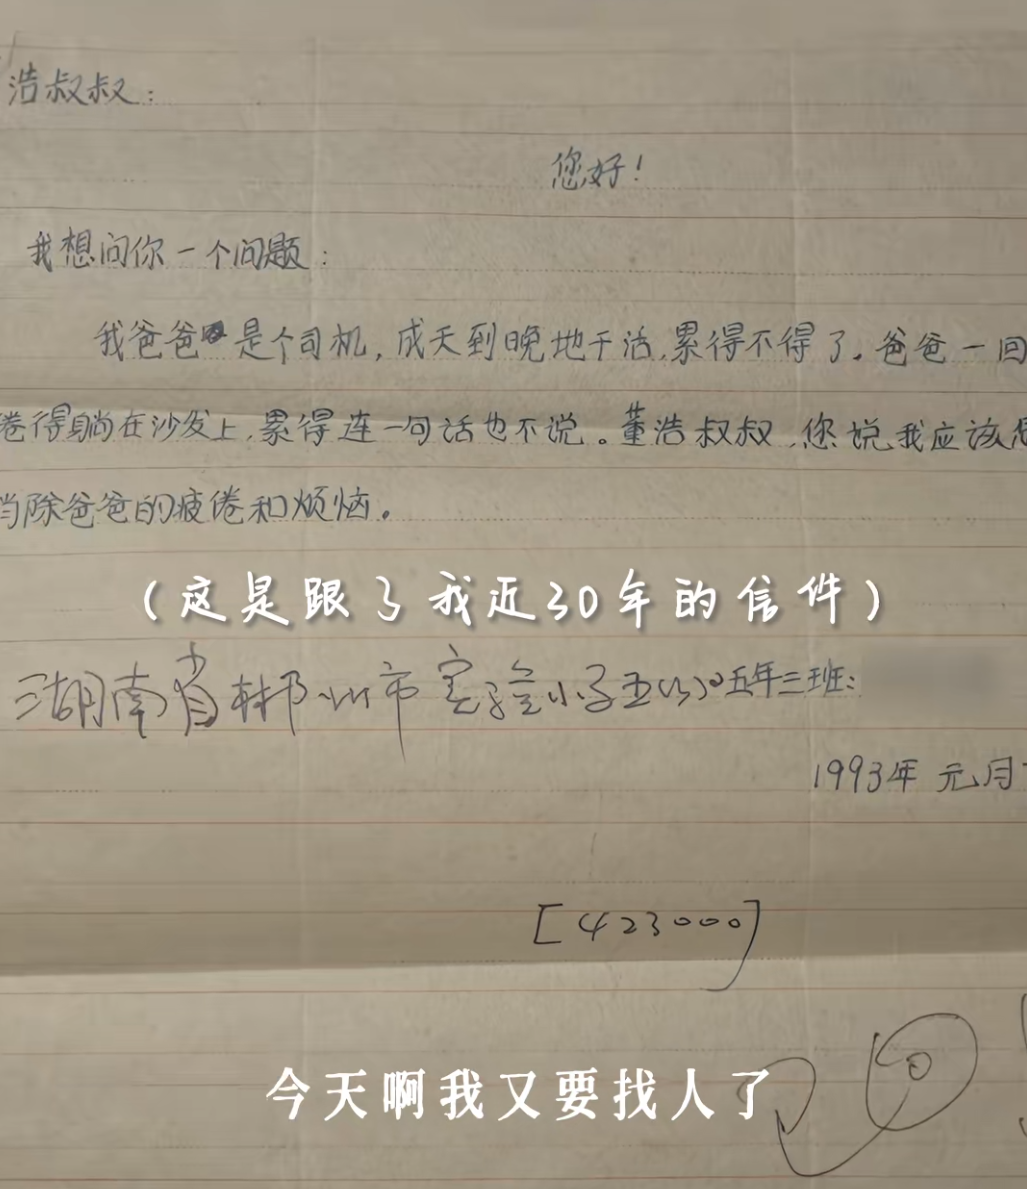 浩叔叔：
您好！
我想问你一个问题：
我爸爸是个司机，成天到晚地干活，累得不得了。爸爸一回
倦得躺在沙发上，累得连一句话也不说。董浩叔叔，您说我应该怎
当除爸爸的疲倦和烦恼。
（这是跟了我近30年的信件）
湖南省郴州市实验小学五(3)五年三班：
1993年元月
[423000]
今天啊我又要找人了